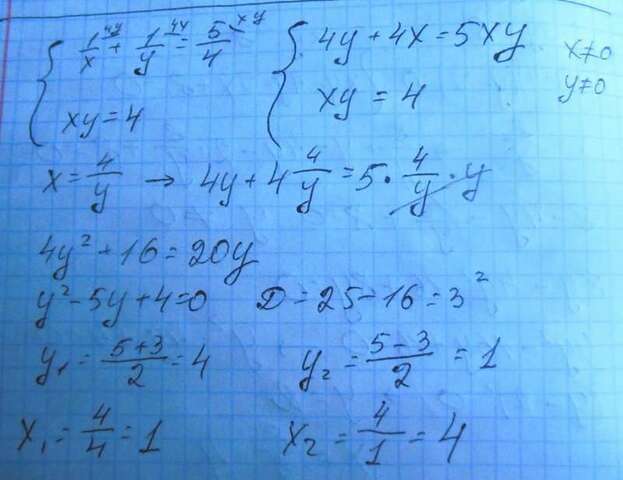 { 1/x^4y + 1/y^4x = 5/4^xy { 4y + 4x = 5xy x≠0
xy = 4 xy = 4 y≠0
x = 4/y → 4y + 4 4/y = 5 · 4/y · y
4y² + 16 = 20y
y² - 5y + 4 = 0 D = 25 - 16 = 3²
y₁ = (5+3)/2 = 4 y₂ = (5-3)/2 = 1
x₁ = 4/4 = 1 x₂ = 4/1 = 4